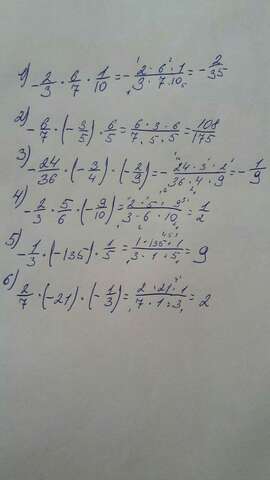 1) -2/3 · 6/7 · 1/10 = - 2·6·1/3·7·10 = - 2/35
2) - 6/7 · (- 3/5) · 6/5 = 6·3·6/7·5·5 = 108/175
3) - 24/36 · (- 3/4) · (- 2/9) = - 24·3·2/36·4·9 = - 1/9
4) - 2/3 · 5/6 · (- 9/10) = 2·5·9/3·6·10 = 1/2
5) - 1/3 · (-135) · 1/5 = 1·135·1/3·1·5 = 9
6) 2/7 · (-21) · (- 1/3) = 2·21·1/7·1·3 = 2